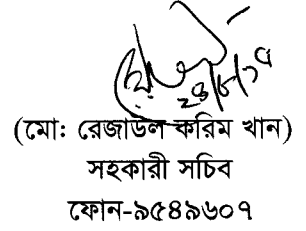 (মো: রেজাউল করিম খান)
সহকারী সচিব
ফোন-৯৫৪৯৬০৭